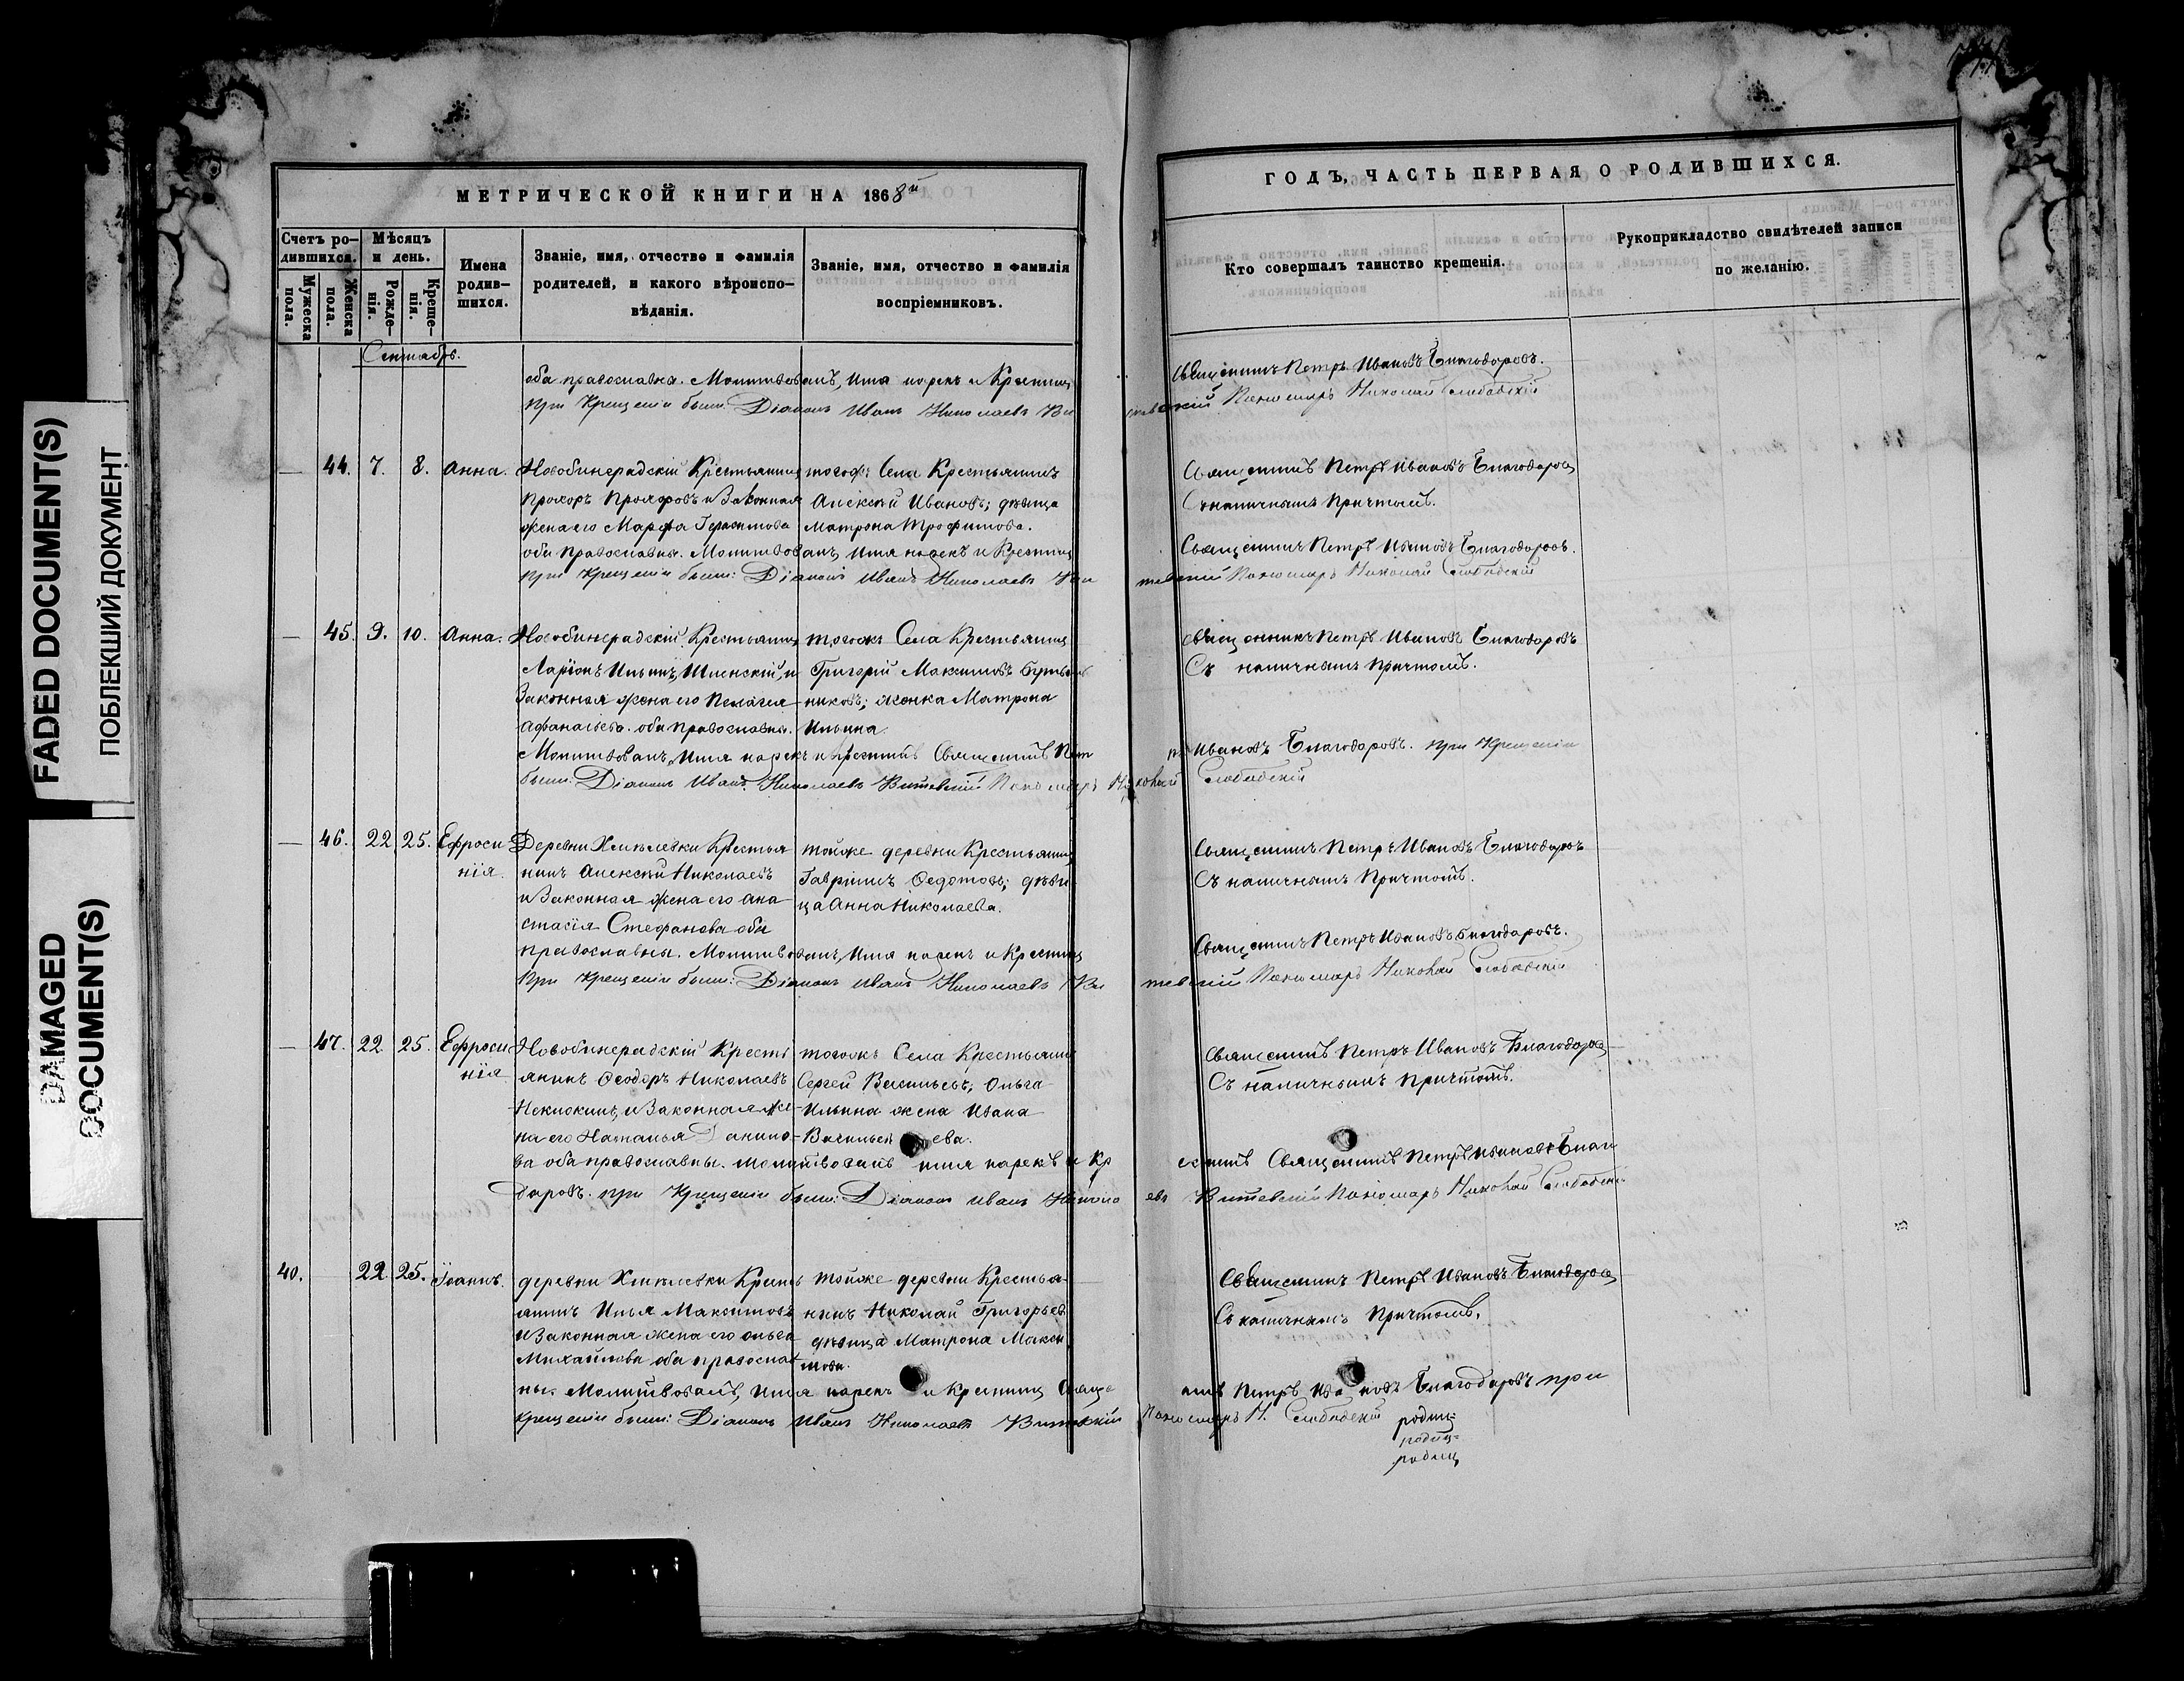 FADED DOCUMENT(S)
ПОБЛЕКШИЙ ДОКУМЕНТ
DAMAGED
DOCUMENT(S)
МЕТРИЧЕСКОЙ КНИГИ НА 1868й
Счетъ ро-
дившихся.
Мужеска пола.
Женска пола.
Мѣсяцъ
и день.
Рожде-
нія.
Креще-
нія.
Имена
родив-
шихся.
Званіе, имя, отчество и фамилія
родителей, и какого вѣроиспо-
вѣданія.
Званіе, имя, отчество и фамилія
воспріемниковъ.
ГОДЪ, ЧАСТЬ ПЕРВАЯ О РОДИВШИХСЯ.
Кто совершалъ таинство крещенія.
Рукоприкладство свидѣтелей записи
по желанію.
Сентябрь.
оба православна. Молитвовалъ, имя нарекъ и Крестилъ Священникъ Петръ Ивановъ Благодаровъ.
при Крещеніи были Діаконъ Иванъ Николаевъ Витевскій Пономарь Николай Слободскій
44. 7. 8. Анна.
Новобинерадскій Крестьянинъ
Прохоръ Прохоровъ и Законная
жена его Марфа Герасимова
оба православны. Молитвовалъ, имя нарекъ и Крестилъ Священникъ Петръ Ивановъ Благодаровъ.
при Крещеніи были: Діаконъ Иванъ Николаевъ Витевскій Пономарь Николай Слободскій
тогожъ Села Крестьянинъ
Алексѣй Ивановъ; дѣвица
Матрона Трофимова.
Священникъ Петръ Ивановъ Благодаровъ
Съ наличнымъ Причтомъ.
45. 9. 10. Анна.
Новобинерадскій Крестьянинъ
Ларіонъ Ильинъ, и
Законная жена его Пелагея
Афанасьева. оба православны.
Молитвовалъ, имя нарекъ и Крестилъ Священникъ Петръ Ивановъ Благодаровъ. при Крещеніи
были: Діаконъ Иванъ Николаевъ Витевскій Пономарь Николай Слободскій
тогожъ Села Крестьянинъ
Григорій Максимовъ
женка Матрона
Ильина
Священникъ Петръ Ивановъ Благодаровъ
Съ наличнымъ Причтомъ.
46. 22. 25. Ефроси
нія.
Деревни Хмѣлевки Крестья
нинъ Алексѣй Николаевъ
и Законная жена его Ана
стасія Стефанова оба
православны. Молитвовалъ, имя нарекъ и Крестилъ Священникъ Петръ Ивановъ Благодаровъ.
При Крещеніи были: Діаконъ Иванъ Николаевъ Витевскій Пономарь Николай Слободскій
тойже деревни Крестьянинъ
Гавріилъ Ѳедотовъ; дѣви
ца Анна Николаева.
Священникъ Петръ Ивановъ Благодаровъ
Съ наличнымъ Причтомъ.
47. 22. 25. Ефроси
нія
Новобинерадскій Кресть
янинъ Ѳеодоръ Николаевъ
и Законная же-
на его Наталья Данило-
ва оба православны. Молитвовалъ имя нарекъ и Крестилъ Священникъ Петръ Ивановъ Благо
даровъ. при Крещеніи были: Діаконъ Иванъ Николаевъ Витевскій Пономарь Николай Слободскій
тогожъ Села Крестьянинъ
Сергей Васильевъ; Ольга
Ильина жена Ивана
Васильева.
Священникъ Петръ Ивановъ Благодаровъ
Съ наличнымъ Причтомъ.
40. 22. 25. Іоаннъ.
деревни Хмѣлевки Кресть
янинъ Илья Максимовъ
и Законная жена его Ольга
Михайлова оба православ
ны. Молитвовалъ, имя нарекъ и Крестилъ Священникъ Петръ Ивановъ Благодаровъ при
Крещеніи были: Діаконъ Иванъ Николаевъ Витевскій Пономарь Н. Слободскій
тойже деревни Крестья
нинъ Николай Григорьевъ
дѣвица Матрона Макси
мова.
Священникъ Петръ Ивановъ Благодаровъ
Съ наличнымъ Причтомъ.
родил
родил
родил